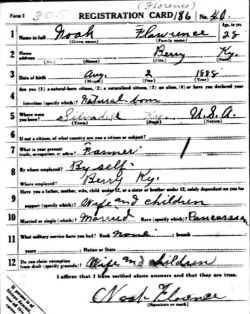 (Florence)
Form 1 305 REGISTRATION CARD 186 No. 40
1 Name in full Noah Flawrence Age, in yrs. 28
(Given name) (Family name)
2 Home address Berry Ky.
(No.) (Street) (City) (State)
3 Date of birth Aug. 2 1888
(Month) (Day) (Year)
4 Are you (1) a natural-born citizen, (2) a naturalized citizen, (3) an alien, (4) or have you declared your
intention (specify which)? Natural born
5 Where were you born? Ky. U.S.A.
(Town) (State) (Nation)
6 If not a citizen, of what country are you a citizen or subject?
7 What is your present trade, occupation, or office? Farmer
8 By whom employed? By self
Where employed? Berry Ky.
9 Have you a father, mother, wife, child under 12, or a sister or brother under 12, solely dependent on you for
support (specify which)? Wife and children
10 Married or single (which)? Married Race (specify which)? Caucassian
11 What military service have you had? Rank None
years Nation or State
12 Do you claim exemption from draft (specify grounds)? Wife and children
I affirm that I have verified above answers and that they are true.
Noah Florence
(Signature or mark)